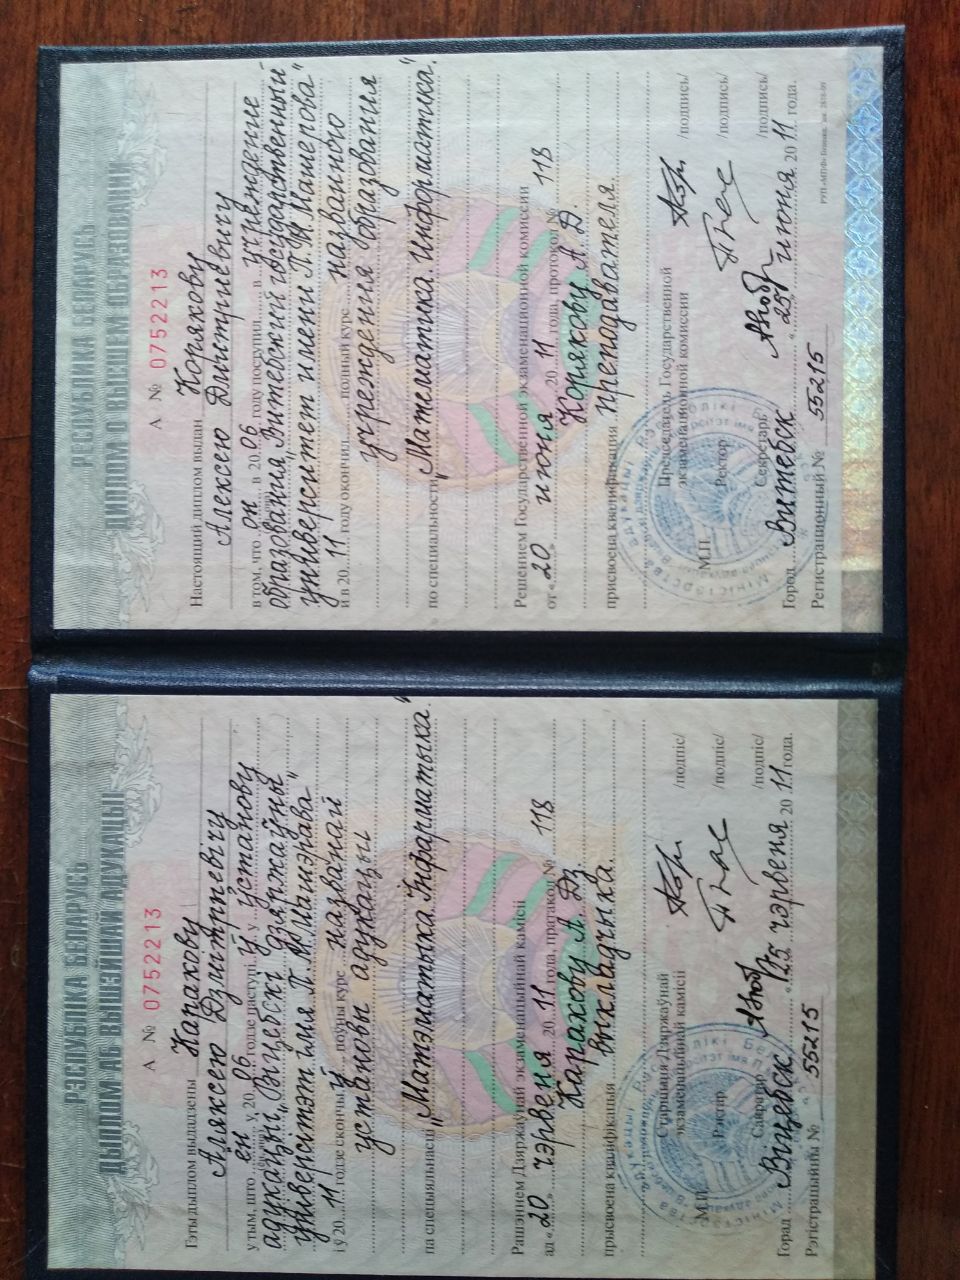 РЭСПУБЛІКА БЕЛАРУСЬ
ДЫПЛОМ АБ ВЫШЭЙШАЙ АДУКАЦЫІ
А № 0752213
Гэты дыплом выдадзены Каракову
Аляксею Дзмітрыевічу
у тым, што ён у 20 06 годзе паступіў у установу
адукацыі "Віцебскі дзяржаўны
універсітэт імя П. М. Машэрава"
і ў 20 11 годзе скончыў поўны курс названай
установы адукацыі
па спецыяльнасці "Матэматыка. Інфарматыка"
Рашэннем Дзяржаўнай экзаменацыйнай камісіі
ад «20 чэрвеня 20 11 года, пратакол № 118
Каракову А. Дз.
прысвоена кваліфікацыя выкладчыка.
Старшыня Дзяржаўнай /подпіс/
экзаменацыйнай камісіі
М.П. Рэктар /подпіс/
Сакратар /подпіс/
Горад Віцебск «25 чэрвеня 20 11 года.
Рэгістрацыйны № 55215
РЕСПУБЛИКА БЕЛАРУСЬ
ДИПЛОМ О ВЫСШЕМ ОБРАЗОВАНИИ
А № 0752213
Настоящий диплом выдан Корякову
Алексею Дмитриевичу
в том, что он в 20 06 году поступил в учреждение
образования "Витебский государственный
университет имени П. М. Машерова"
и в 20 11 году окончил полный курс названного
учреждения образования
по специальности "Математика. Информатика."
Решением Государственной экзаменационной комиссии
от «20 июня 20 11 года, протокол № 118
Корякову А. Д.
присвоена квалификация преподавателя.
Председатель Государственной /подпись/
экзаменационной комиссии
М.П. Ректор /подпись/
Секретарь /подпись/
Город Витебск «25» июня 20 11 года.
Регистрационный № 55215